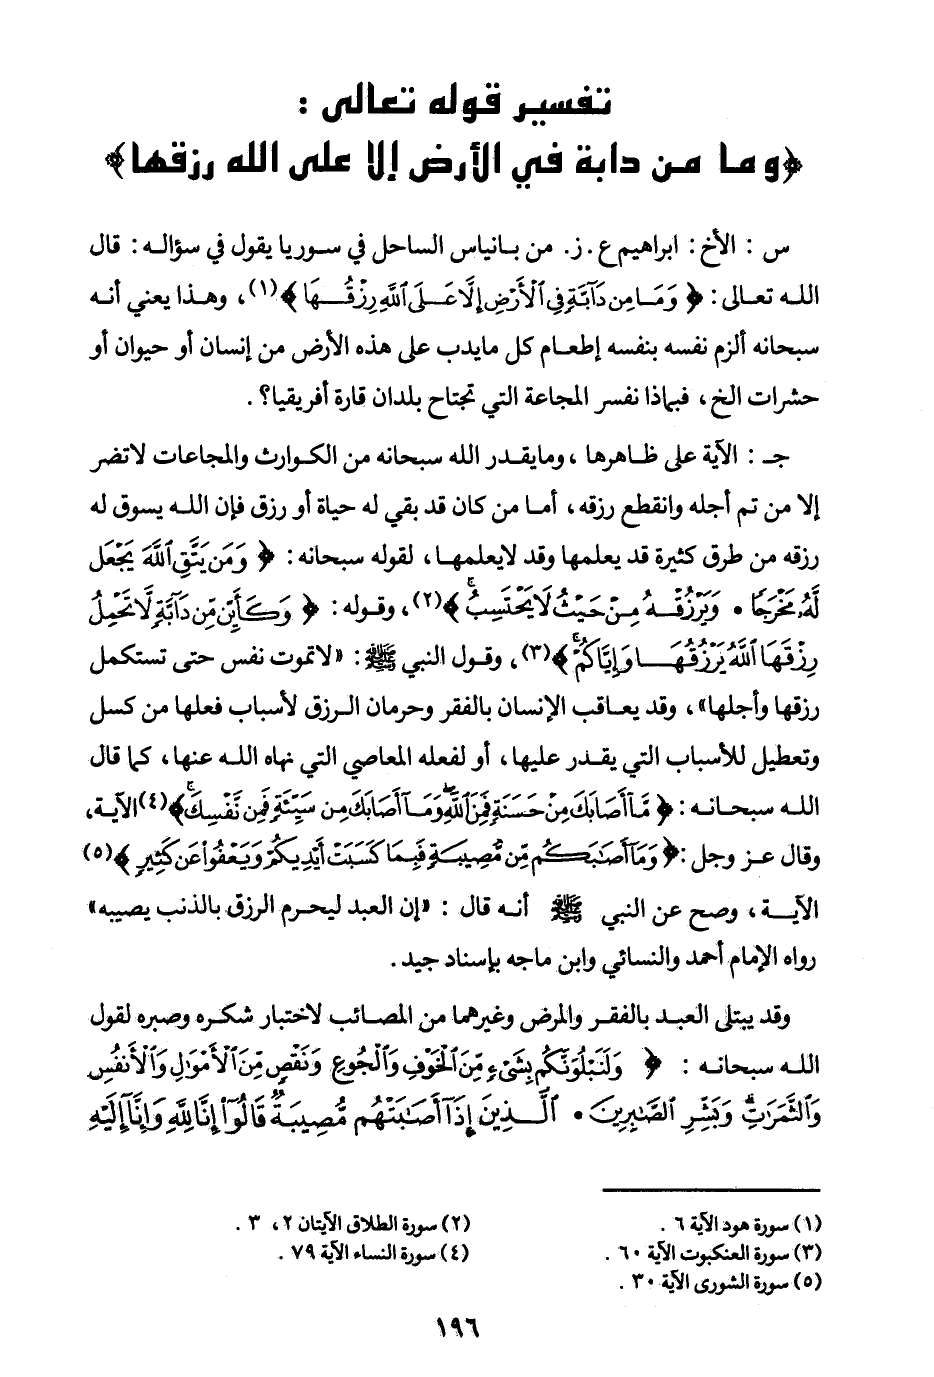 تفسير قوله تعالى :
﴿وما من دابة في الأرض إلا على الله رزقها﴾
س : الأخ : ابراهيم ع . ز. من بانياس الساحل في سوريا يقول في سؤاله : قال
الله تعالى : ﴿ وَمَا مِن دَآبَّةٍ فِي ٱلْأَرْضِ إِلَّا عَلَى ٱللَّهِ رِزْقُهَا ﴾(١)، وهذا يعني أنه
سبحانه ألزم نفسه بنفسه إطعام كل مايدب على هذه الأرض من إنسان أو حيوان أو
حشرات الخ ، فبماذا نفسر المجاعة التي تجتاح بلدان قارة أفريقيا؟ .
جـ : الآية على ظاهرها ، ومايقدر الله سبحانه من الكوارث والمجاعات لاتضر
إلا من تم أجله وانقطع رزقه ، أما من كان قد بقي له حياة أو رزق فإن الله يسوق له
رزقه من طرق كثيرة قد يعلمها وقد لايعلمها ، لقوله سبحانه : ﴿ وَمَن يَتَّقِ ٱللَّهَ يَجْعَل
لَّهُۥ مَخْرَجًا • وَيَرْزُقْهُ مِنْ حَيْثُ لَا يَحْتَسِبُ ﴾(٢)، وقوله : ﴿ وَكَأَيِّن مِّن دَآبَّةٍ لَّا تَحْمِلُ
رِزْقَهَا ٱللَّهُ يَرْزُقُهَا وَإِيَّاكُمْ ﴾(٣)، وقول النبي ﷺ : «لاتموت نفس حتى تستكمل
رزقها وأجلها» ، وقد يعاقب الإنسان بالفقر وحرمان الرزق لأسباب فعلها من كسل
وتعطيل للأسباب التي يقدر عليها ، أو لفعله المعاصي التي نهاه الله عنها ، كما قال
الله سبحانه : ﴿ مَّآ أَصَابَكَ مِنْ حَسَنَةٍ فَمِنَ ٱللَّهِ وَمَآ أَصَابَكَ مِن سَيِّئَةٍ فَمِن نَّفْسِكَ ﴾(٤)الآية ،
وقال عز وجل : ﴿ وَمَآ أَصَٰبَكُم مِّن مُّصِيبَةٍ فَبِمَا كَسَبَتْ أَيْدِيكُمْ وَيَعْفُوا۟ عَن كَثِيرٍ ﴾(٥)
الآية ، وصح عن النبي ﷺ أنه قال : «إن العبد ليحرم الرزق بالذنب يصيبه»
رواه الإمام أحمد والنسائي وابن ماجه بإسناد جيد .
وقد يبتلى العبد بالفقر والمرض وغيرهما من المصائب لاختبار شكره وصبره لقول
الله سبحانه : ﴿ وَلَنَبْلُوَنَّكُم بِشَىْءٍ مِّنَ ٱلْخَوْفِ وَٱلْجُوعِ وَنَقْصٍ مِّنَ ٱلْأَمْوَٰلِ وَٱلْأَنفُسِ
وَٱلثَّمَرَٰتِ وَبَشِّرِ ٱلصَّٰبِرِينَ • ٱلَّذِينَ إِذَآ أَصَٰبَتْهُم مُّصِيبَةٌ قَالُوٓا۟ إِنَّا لِلَّهِ وَإِنَّآ إِلَيْهِ
(١) سورة هود الآية ٦ .
(٢) سورة الطلاق الآيتان ٢ ، ٣ .
(٣) سورة العنكبوت الآية ٦٠ .
(٤) سورة النساء الآية ٧٩ .
(٥) سورة الشورى الآية ٣٠ .
١٩٦